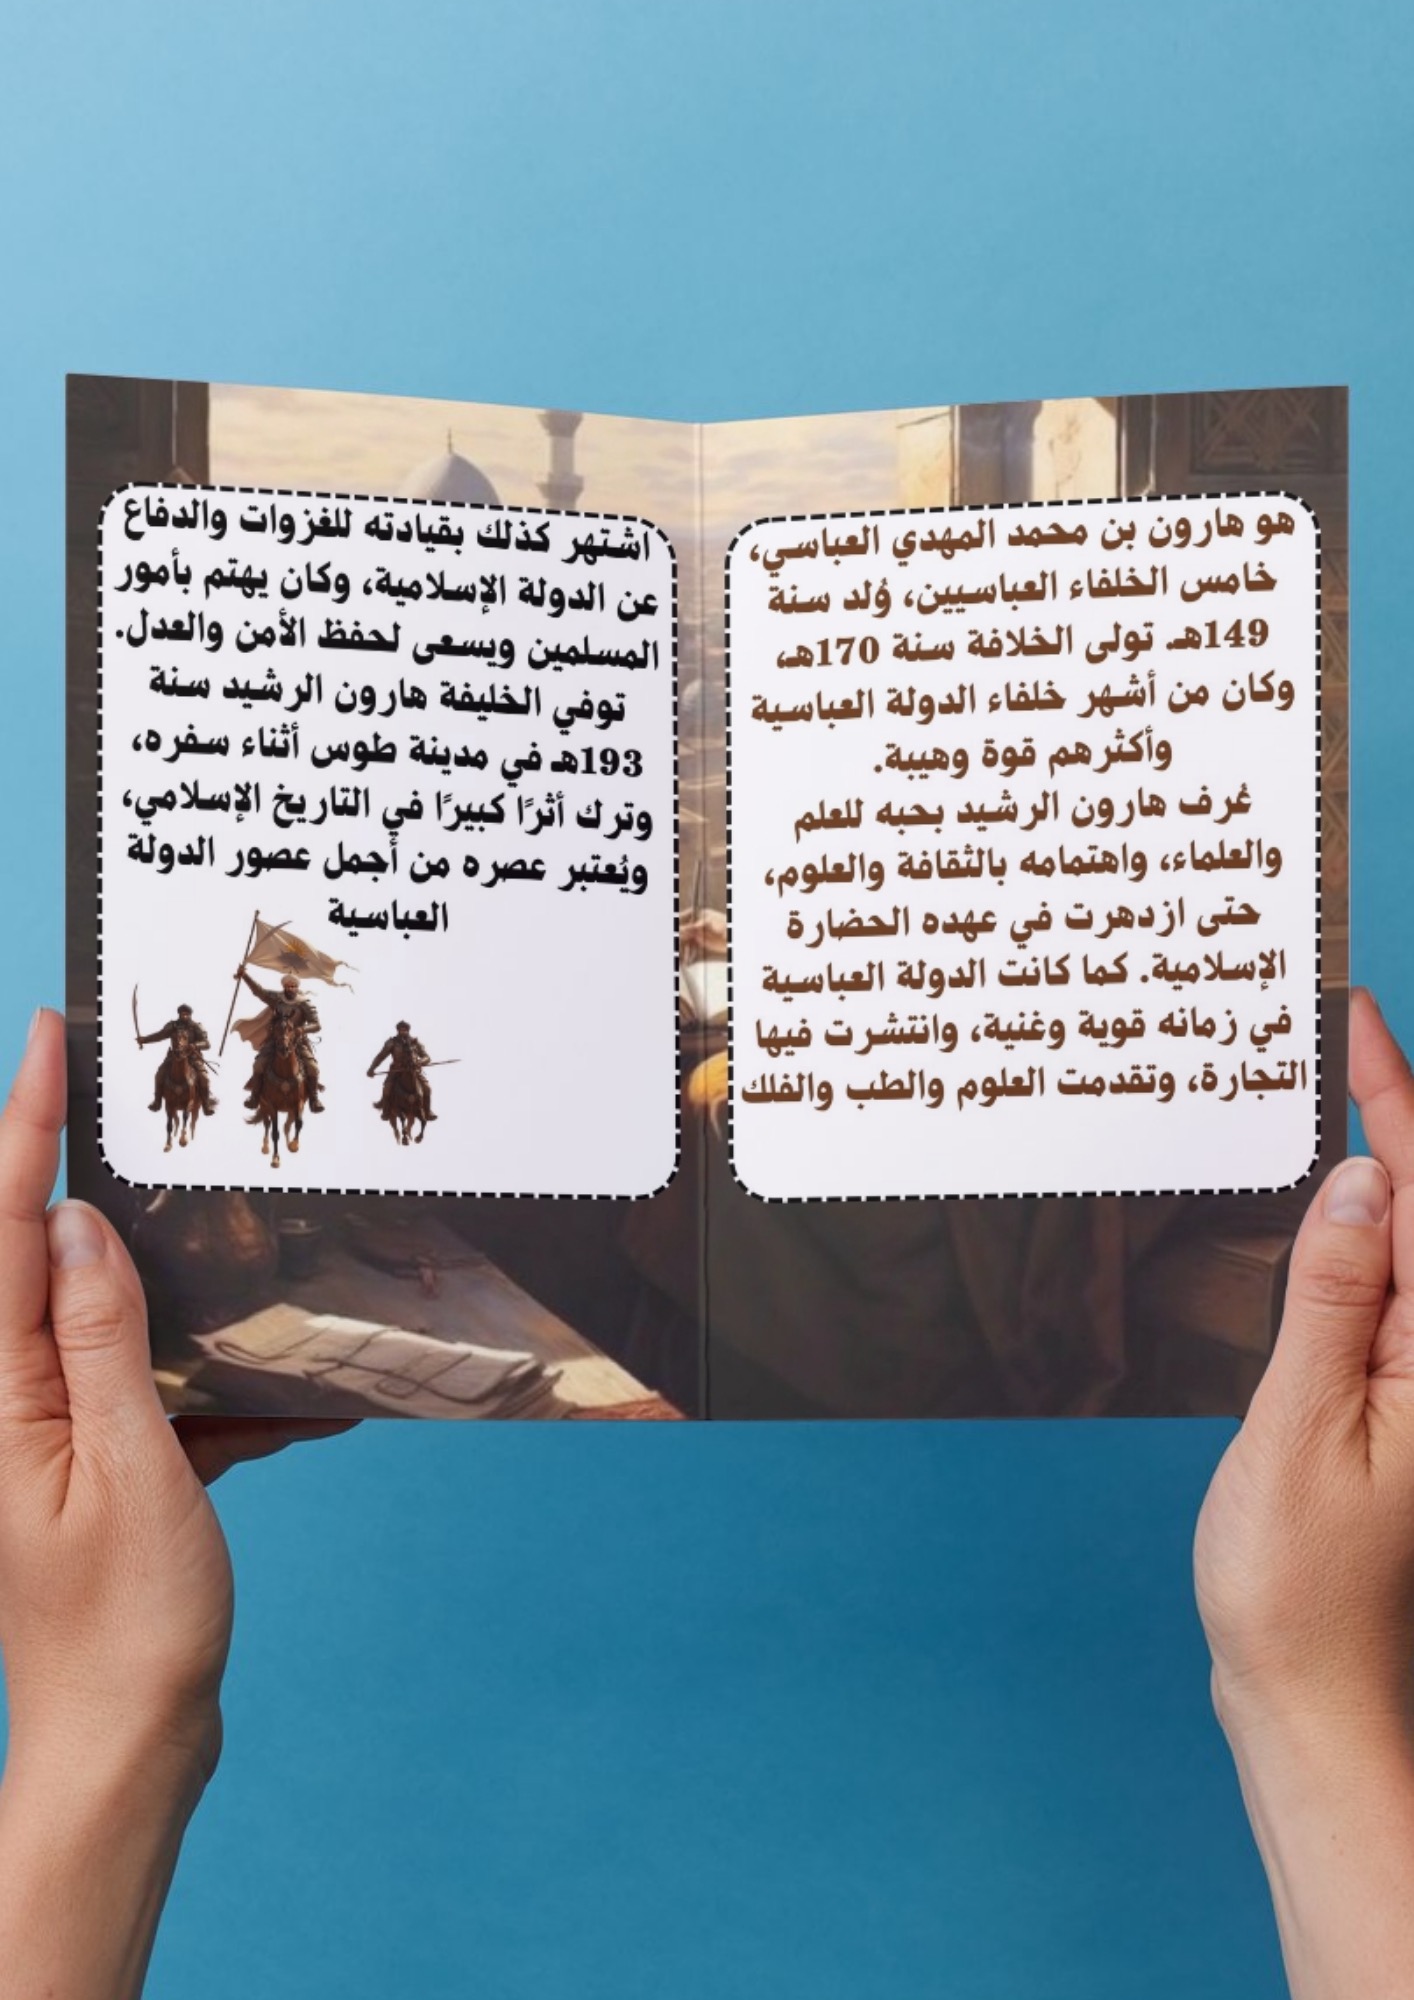 هو هارون بن محمد المهدي العباسي،
خامس الخلفاء العباسيين، وُلد سنة
149هـ تولى الخلافة سنة 170هـ،
وكان من أشهر خلفاء الدولة العباسية
وأكثرهم قوة وهيبة.
عُرف هارون الرشيد بحبه للعلم
والعلماء، واهتمامه بالثقافة والعلوم،
حتى ازدهرت في عهده الحضارة
الإسلامية. كما كانت الدولة العباسية
في زمانه قوية وغنية، وانتشرت فيها
التجارة، وتقدمت العلوم والطب والفلك
اشتهر كذلك بقيادته للغزوات والدفاع
عن الدولة الإسلامية، وكان يهتم بأمور
المسلمين ويسعى لحفظ الأمن والعدل.
توفي الخليفة هارون الرشيد سنة
193هـ في مدينة طوس أثناء سفره،
وترك أثرًا كبيرًا في التاريخ الإسلامي،
ويُعتبر عصره من أجمل عصور الدولة
العباسية